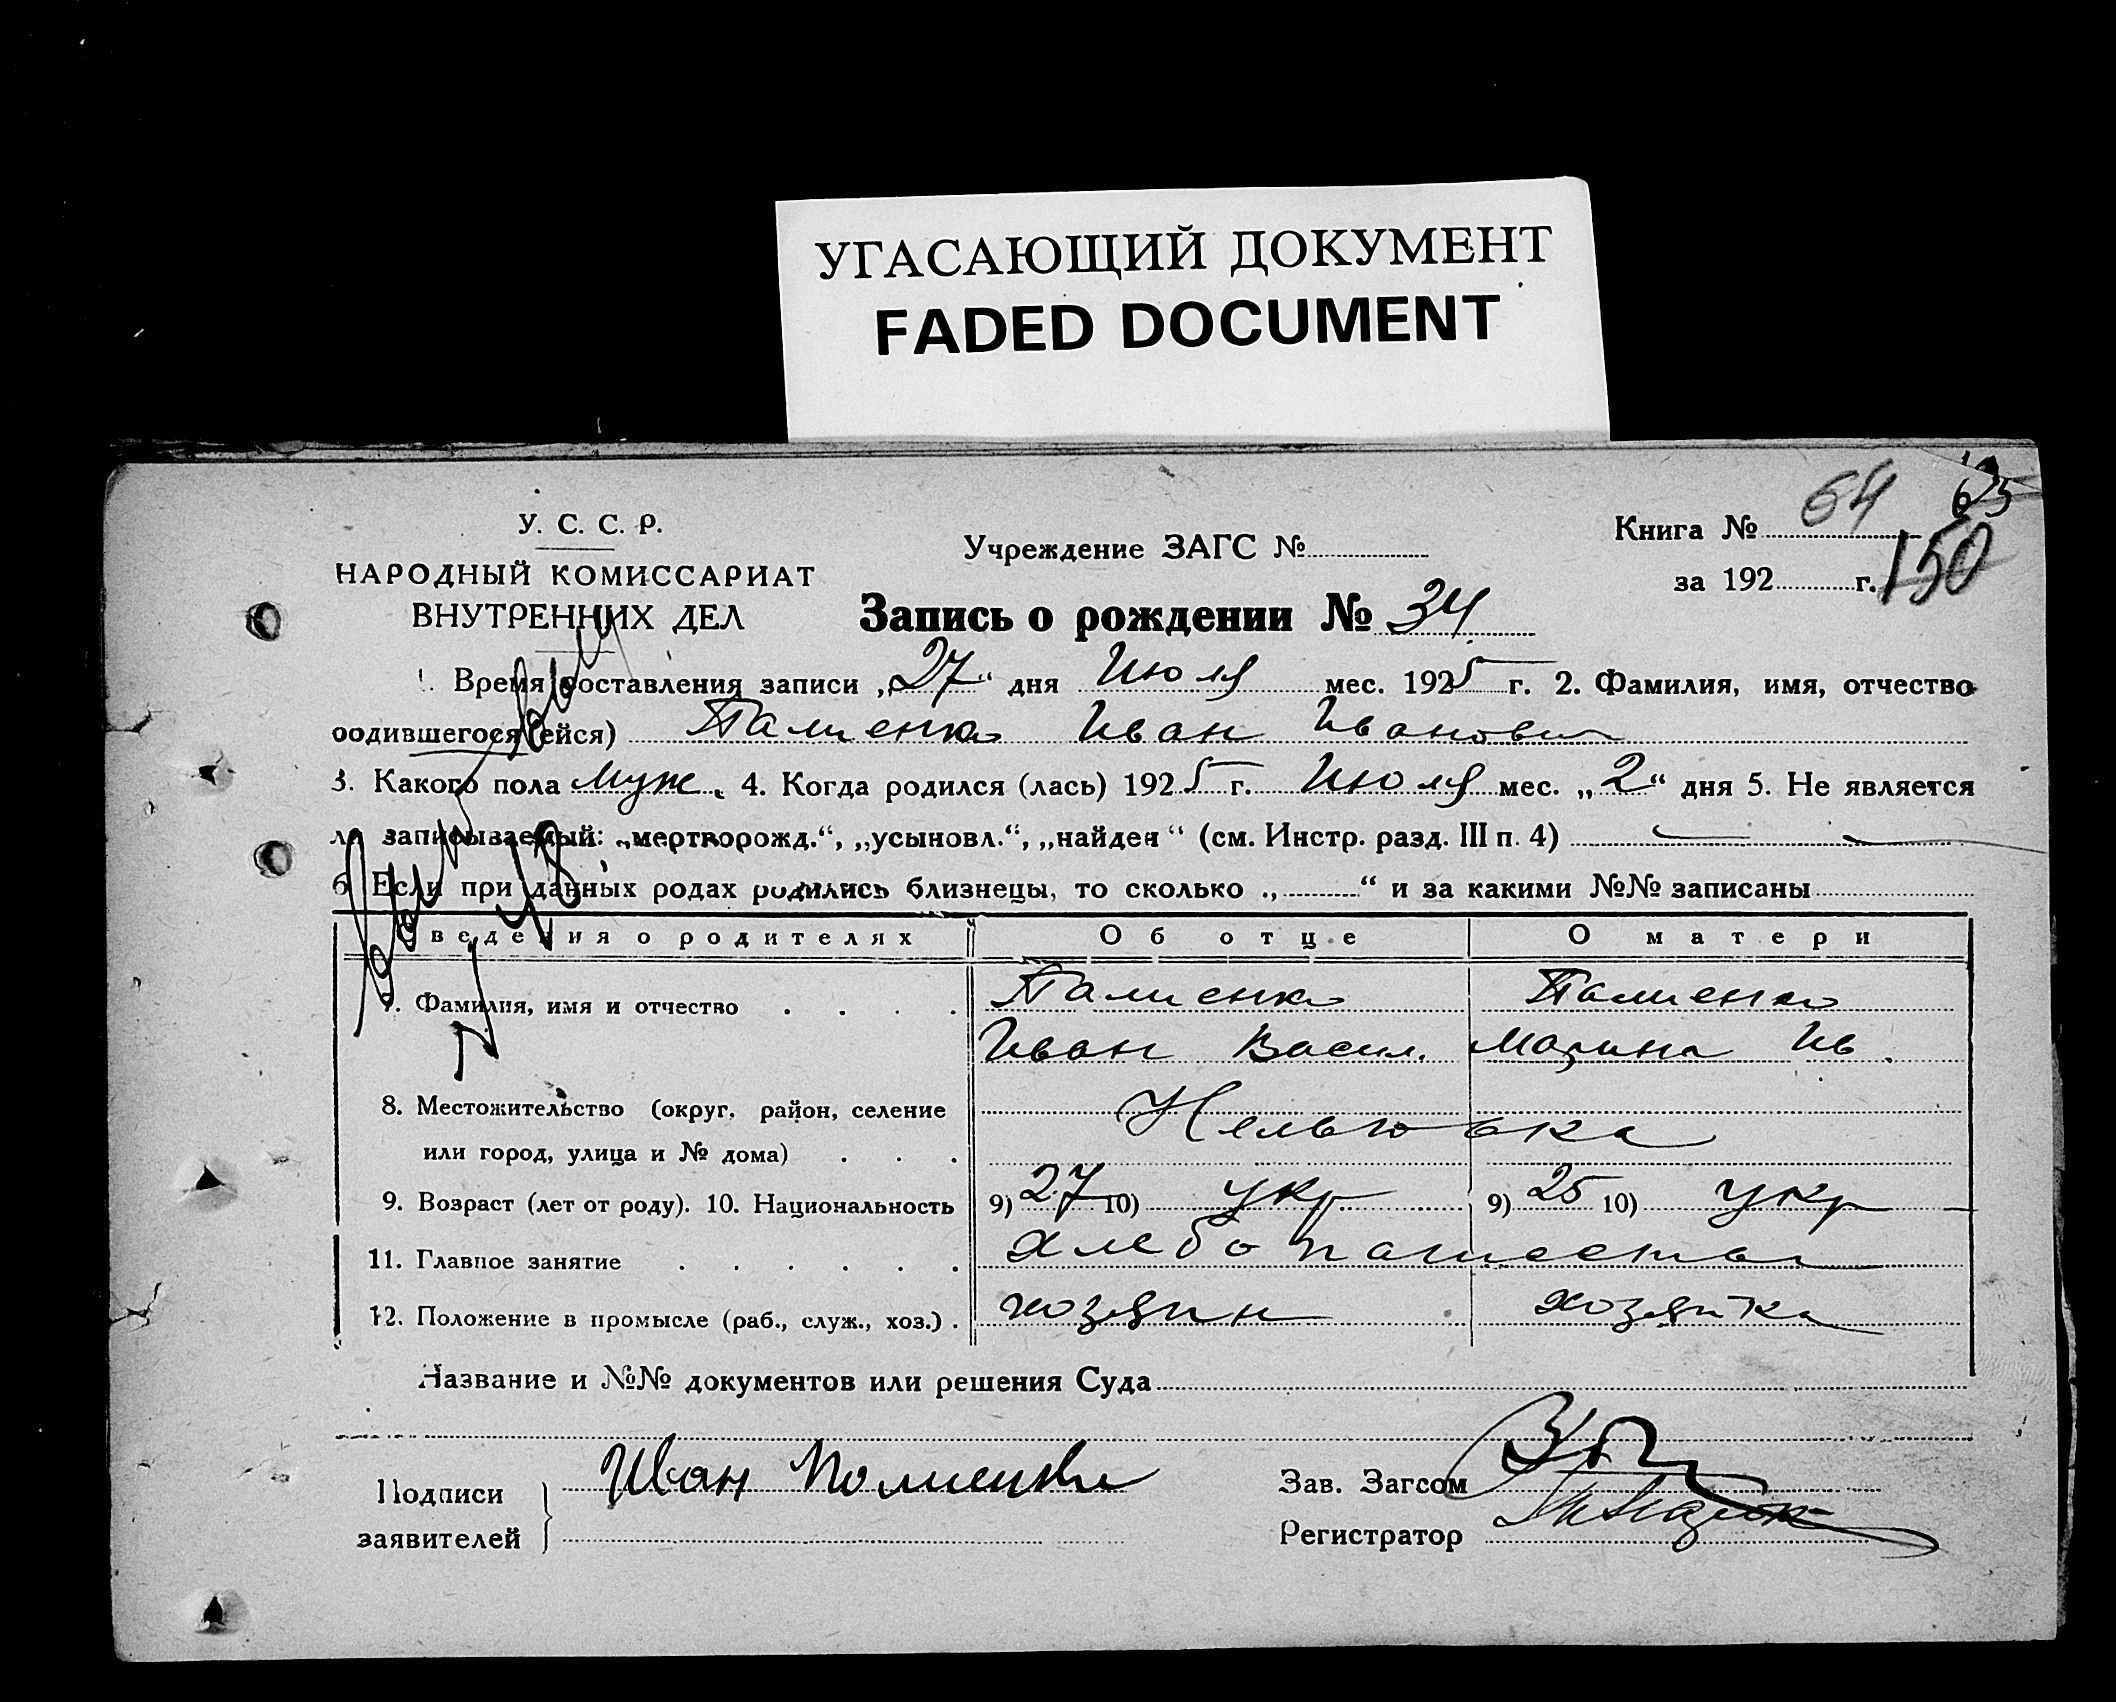 УГАСАЮЩИЙ ДОКУМЕНТ
FADED DOCUMENT
У. С. С. Р.
НАРОДНЫЙ КОМИССАРИАТ
ВНУТРЕННИХ ДЕЛ
Учреждение ЗАГС №
Книга № 64 63
за 192 г. 150
Запись о рождении № 34
1. Время составления записи „27“ дня Июля мес. 1925 г. 2. Фамилия, имя, отчество
родившегося (ейся) Палиенко Иван Иванович
3. Какого пола муж. 4. Когда родился (лась) 1925 г. Июля мес. „2“ дня 5. Не является
ли записываемый: „мертворожд.“, „усыновл.“, „найден“ (см. Инстр. разд. III п. 4)
6 Если при данных родах родились близнецы, то сколько „ “ и за какими №№ записаны
Сведения о родителях Об отце О матери
7. Фамилия, имя и отчество Палиенко Палиенко
Иван Васил. Марина Ив.
8. Местожительство (округ, район, селение
или город, улица и № дома)
9. Возраст (лет от роду). 10. Национальность 9) 27 10) укр 9) 25 10) укр
11. Главное занятие хлебопашество
12. Положение в промысле (раб., служ., хоз.) хозяин хозяйка
Название и №№ документов или решения Суда
Подписи Иван Полиенко Зав. Загсом
заявителей Регистратор